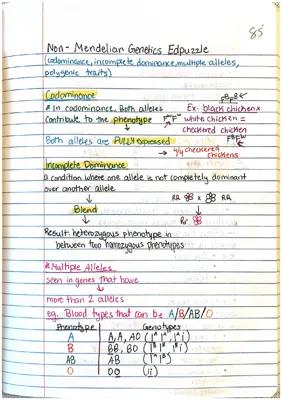 85
Non-Mendelian Genetics Edpuzzle
(codominance, incomplete dominance, multiple alleles,
polygenic traits)
Codominance
* In codominance, Both alleles
contribute to the phenotype
Ex: black chicken x
white chicken =
checkered chicken
Both alleles are FULLY expressed
→ 4/4 checkered
chickens
Incomplete Dominance
a condition where one allele is not completely dominant
over another allele
Blend
Result heterozygous phenotype in
between two homozygous phenotypes
*Multiple Alleles
seen in genes that have
more than 2 alleles
eg. Blood types that can be A/B/AB/O
Phenotype Genotypes
A A,A, AO (IᴬIᴬ, Iᴬi)
B BB, BO (IᴮIᴮ, Iᴮi)
AB AB (IᴬIᴮ)
O OO (ii)